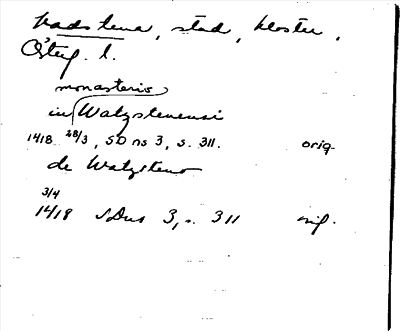 Vadstena, stad, kloster,
Österg. l.
monasterio
in Watzstenensi
1418 28/3, SD ns 3, s. 311. orig.
de Watzsteno
3/4
1418 SDns 3, s. 311 orig.